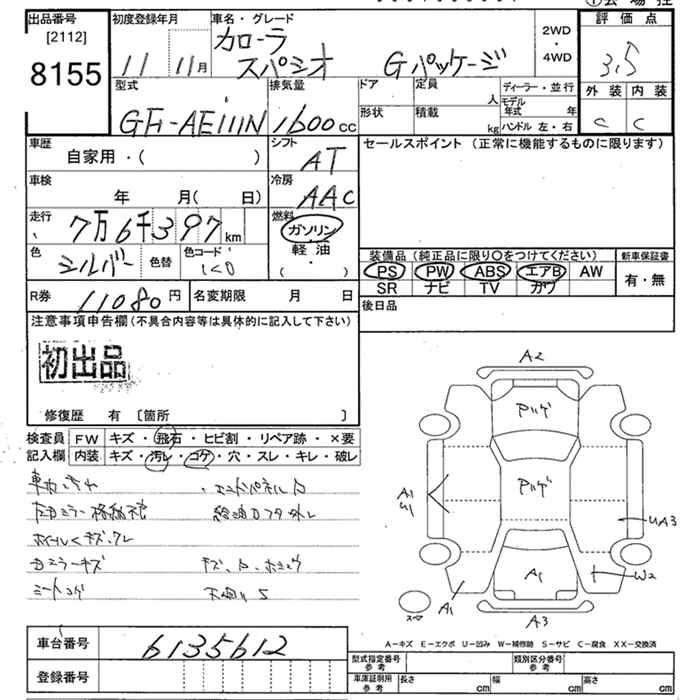 出品番号
[2112]
8155
初度登録年月
11 11月
車名・グレード
カローラ
スパシオ Gパッケージ
2WD
・
4WD
評価点
3.5
外装 内装
C C
型式
GF-AE111N
排気量
1600cc
ドア
定員
人
ディーラー・並行
モデル年式 年
形状
積載
kg
ハンドル 左・右
車歴
自家用・( )
シフト
AT
セールスポイント (正常に機能するものに限ります)
車検
年 月( 日)
冷房
AAC
走行
7万6千397km
燃料
ガソリン
・
軽油
・
( )
色
シルバー
色替
色コード
1C0
装備品 (純品に限り〇をつけてください)
新車保証書
PS PW ABS エアB AW
有・無
SR ナビ TV カワ
R券
11080円
名変期限 月 日
後日品
注意事項申告欄 (不具合内容等は具体的に記入して下さい)
初出品
修復歴 有 〔箇所 〕
検査員
記入欄
FW キズ・飛石・ヒビ割・リペア跡・×要
内装 キズ・汚レ・コゲ・穴・スレ・キレ・破レ
エンドパネルA
ホイールキズ
シートコゲ
A2
アゲ
アゲ
A1
U1
UA3
A1
W2
A1
スペア
A3
A－キズ E－エクボ U－凹み W－補修跡 S－サビ C－腐食 XX－交換済
車台番号
6135612
登録番号
型式指定番号
参考
類別区分番号
参考
車庫証明用
参考
長さ cm
幅 cm
高さ cm